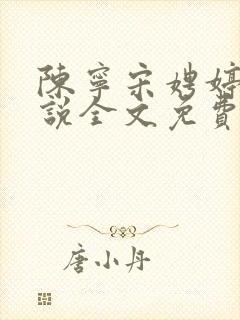 陳寧宋娉婷
說全文免費
唐小丹